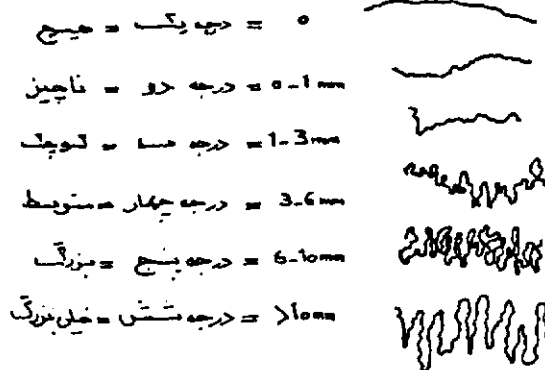 هیچ = درجه یک = 0
ناچیز = درجه دو = 0-1 mm
کوچک = درجه سه = 1-3 mm
متوسط = درجه چهار = 3-6 mm
بزرگ = درجه پنج = 6-10 mm
خیلی بزرگ = درجه شش = >10 mm